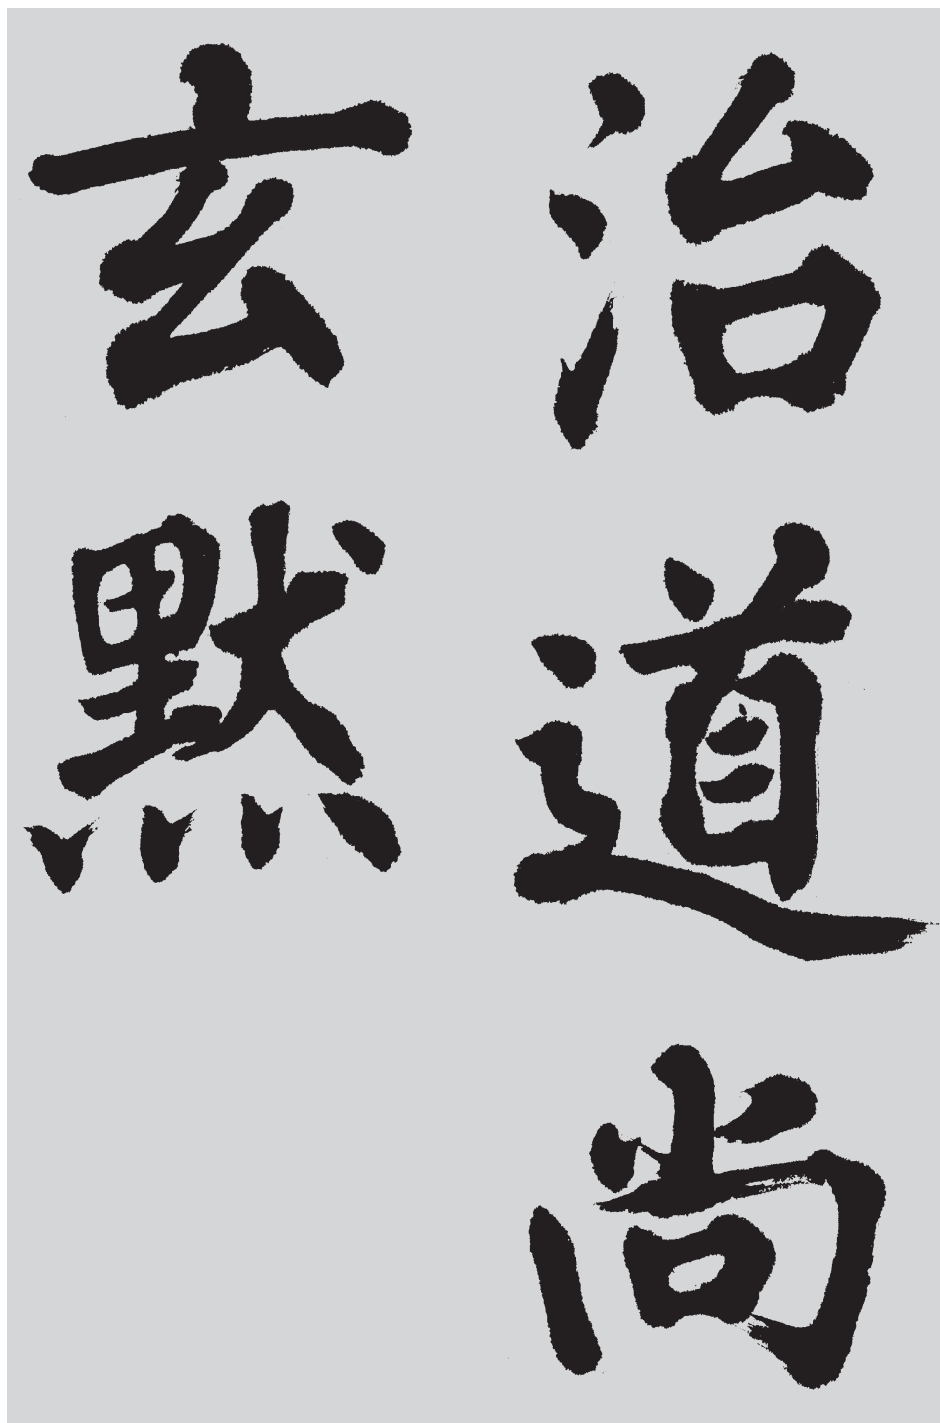 治道尚
玄默